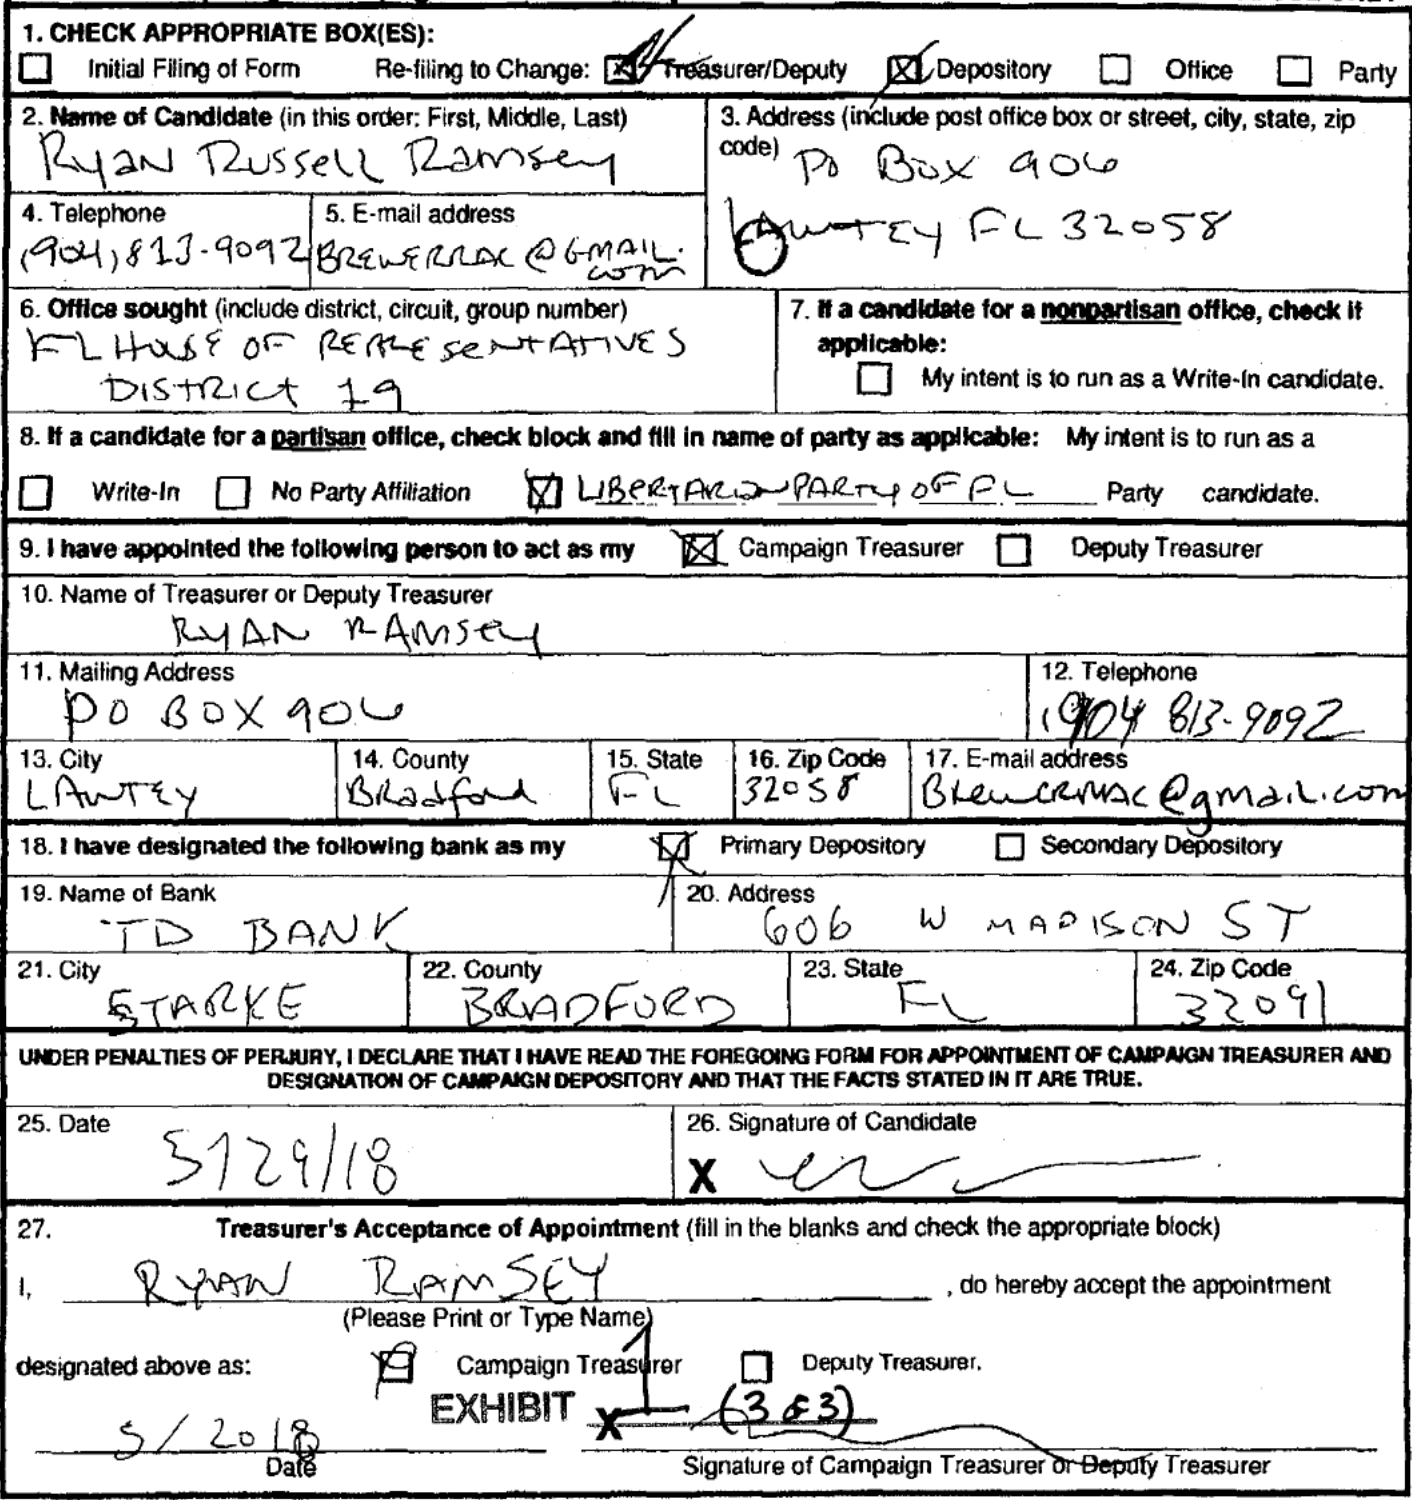 1. CHECK APPROPRIATE BOX(ES):
Initial Filing of Form Re-filing to Change: Treasurer/Deputy Depository Office Party
2. Name of Candidate (in this order: First, Middle, Last)
Ryan Russell Ramsey
3. Address (include post office box or street, city, state, zip
code) PO Box 906
LAWTEY FL 32058
4. Telephone
(904) 813-9092
5. E-mail address
BREWERRAC@GMAIL.
com
6. Office sought (include district, circuit, group number)
FL HOUSE OF REPRESENTATIVES
DISTRICT 19
7. If a candidate for a nonpartisan office, check if
applicable:
My intent is to run as a Write-In candidate.
8. If a candidate for a partisan office, check block and fill in name of party as applicable: My intent is to run as a
Write-In No Party Affiliation LIBERTARIAN PARTY OF FL Party candidate.
9. I have appointed the following person to act as my Campaign Treasurer Deputy Treasurer
10. Name of Treasurer or Deputy Treasurer
RYAN RAMSEY
11. Mailing Address
PO BOX 906
12. Telephone
(904 813-9092
13. City
LAWTEY
14. County
Bradford
15. State
FL
16. Zip Code
32058
17. E-mail address
@gmail.com
18. I have designated the following bank as my Primary Depository Secondary Depository
19. Name of Bank
TD BANK
20. Address
606 W MADISON ST
21. City
STARKE
22. County
BRADFORD
23. State
FL
24. Zip Code
32091
UNDER PENALTIES OF PERJURY, I DECLARE THAT I HAVE READ THE FOREGOING FORM FOR APPOINTMENT OF CAMPAIGN TREASURER AND
DESIGNATION OF CAMPAIGN DEPOSITORY AND THAT THE FACTS STATED IN IT ARE TRUE.
25. Date
5/29/18
26. Signature of Candidate
X
27. Treasurer's Acceptance of Appointment (fill in the blanks and check the appropriate block)
I, RYAN RAMSEY , do hereby accept the appointment
(Please Print or Type Name)
designated above as: Campaign Treasurer Deputy Treasurer.
EXHIBIT 1 (3 of 3)
X
5/2018
Date Signature of Campaign Treasurer or Deputy Treasurer